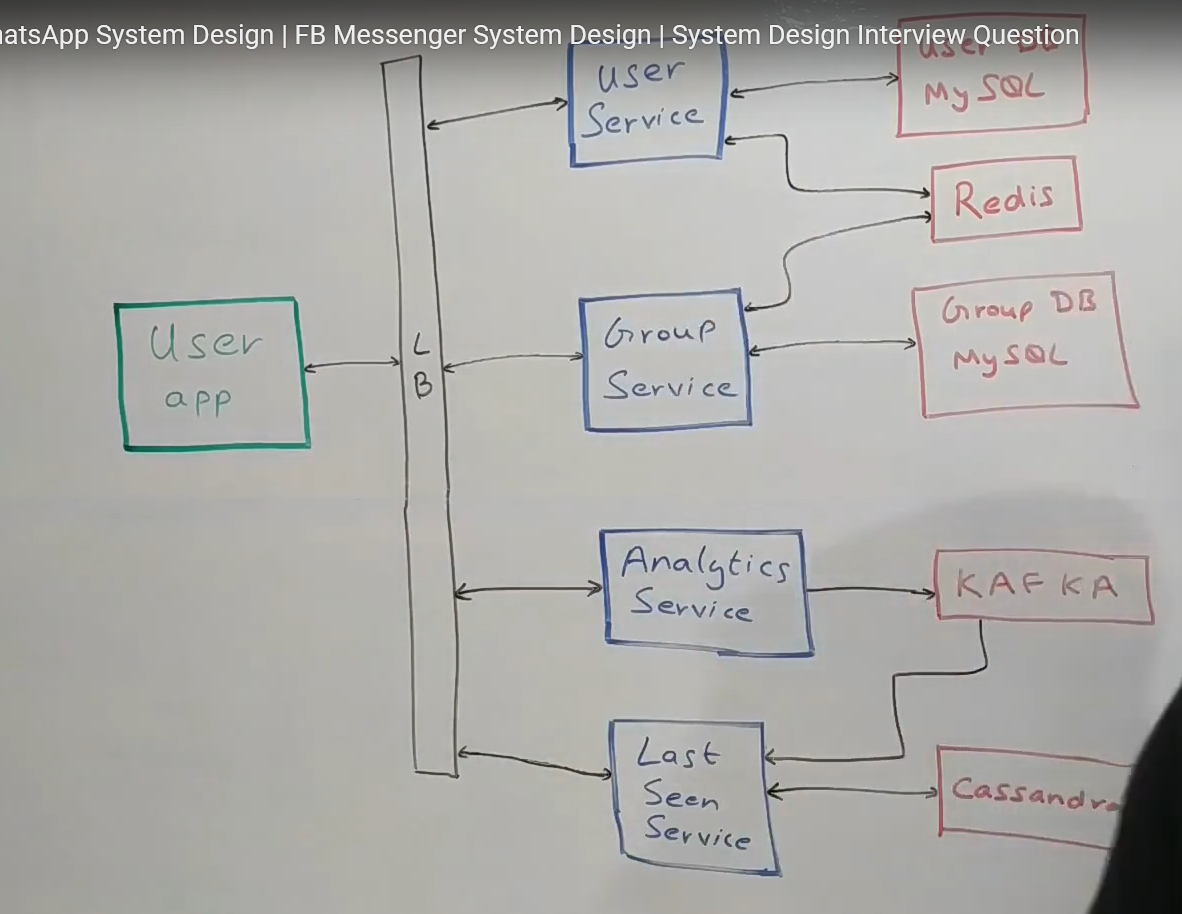 hatsApp System Design | FB Messenger System Design | System Design Interview Question
User
Service
User DB
MySQL
Redis
User
app
L
B
Group
Service
Group DB
MySQL
Analytics
Service
KAFKA
Last
Seen
Service
Cassandra